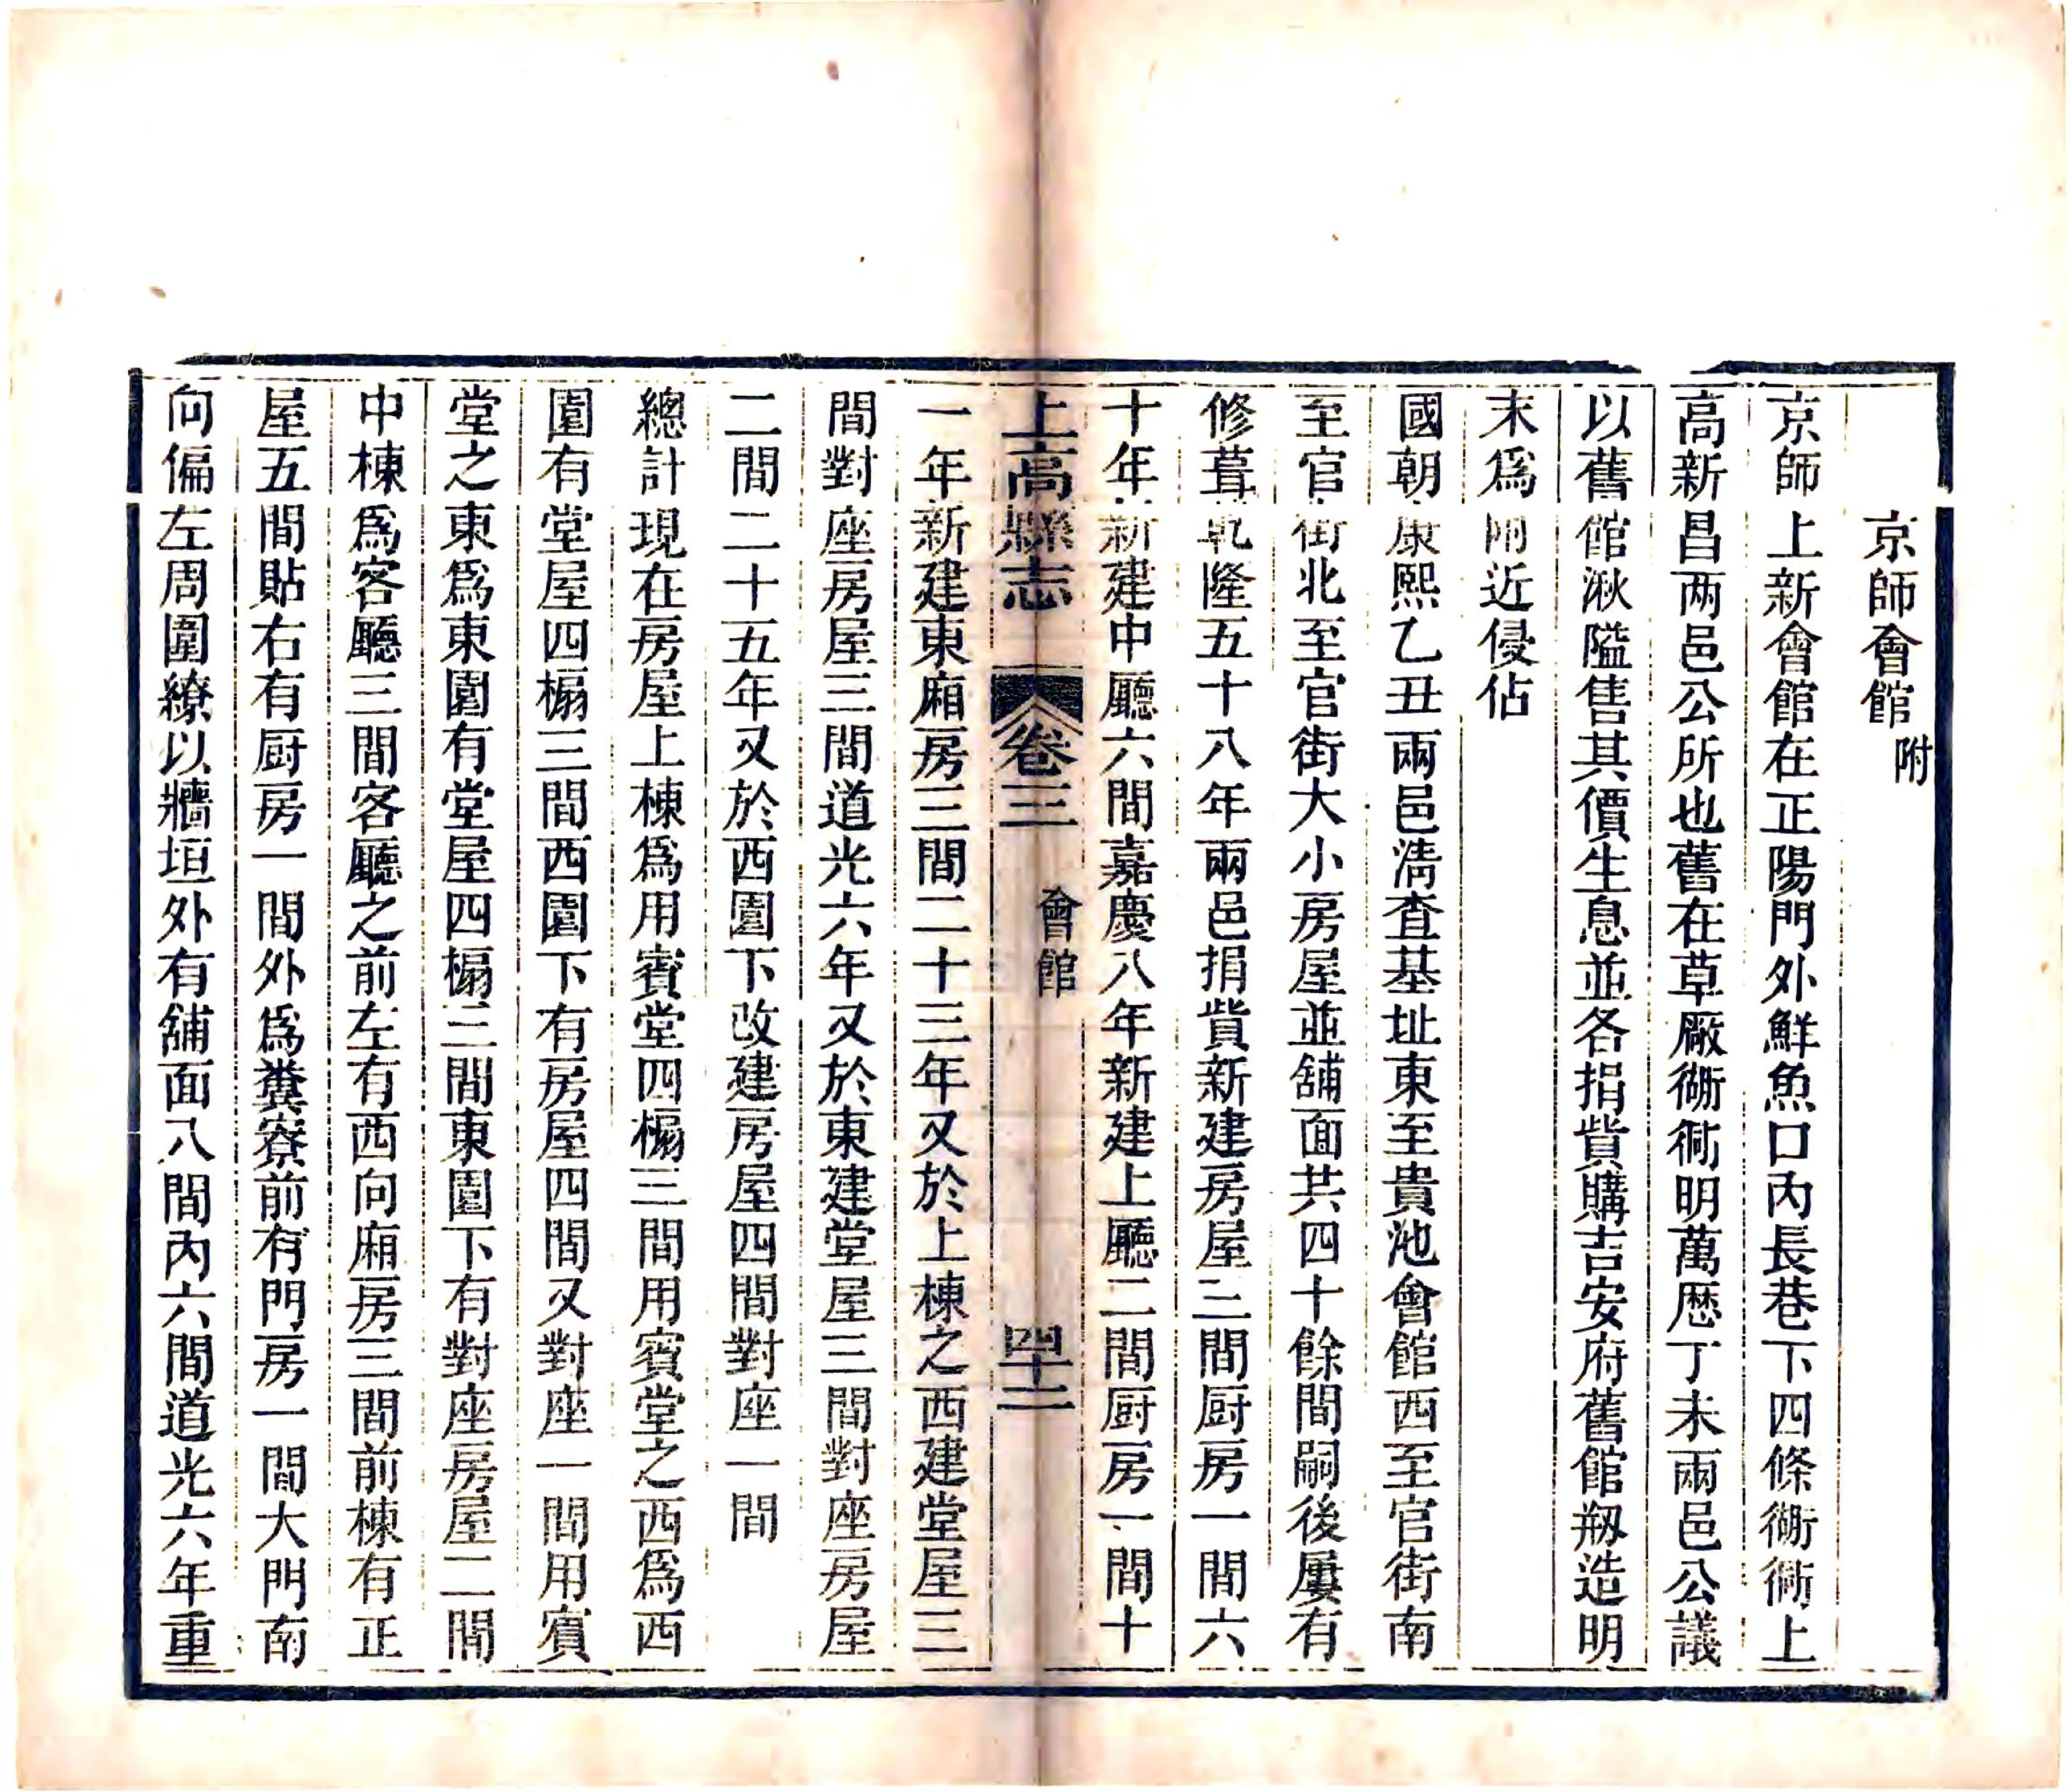 京師會館附
京師上新會館在正陽門外鮮魚口內長巷下四條衚衕上
高新昌兩邑公所也舊在草廠衚衕明萬厯丁未兩邑公議
以舊館湫隘售其價生息並各捐貲購吉安府舊館剏造明
末爲附近侵佔
國朝康熙乙丑兩邑淸查基址東至貴池會館西至官街南
至官街北至官街大小房屋並舖面共四十餘間嗣後屢有
修葺乾隆五十八年兩邑捐貲新建房屋三間厨房一間六
十年新建中廳六間嘉慶八年新建上廳二間厨房一間十
上高縣志 卷三 會館 四十二
一年新建東廂房三間二十三年又於上棟之西建堂屋三
間對座房屋三間道光六年又於東建堂屋三間對座房屋
二間二十五年又於西園下改建房屋四間對座一間
總計現在房屋上棟爲用賓堂四榻三間用賓堂之西爲西
園有堂屋四榻三間西園下有房屋四間又對座一間用賓
堂之東爲東園有堂屋四榻三間東園下有對座房屋二間
中棟爲客廳三間客廳之前左有西向廂房三間前棟有正
屋五間貼右有厨房一間外爲糞寮前有門房一間大門南
向偏左周圍繚以牆垣外有舖面八間內六間道光六年重